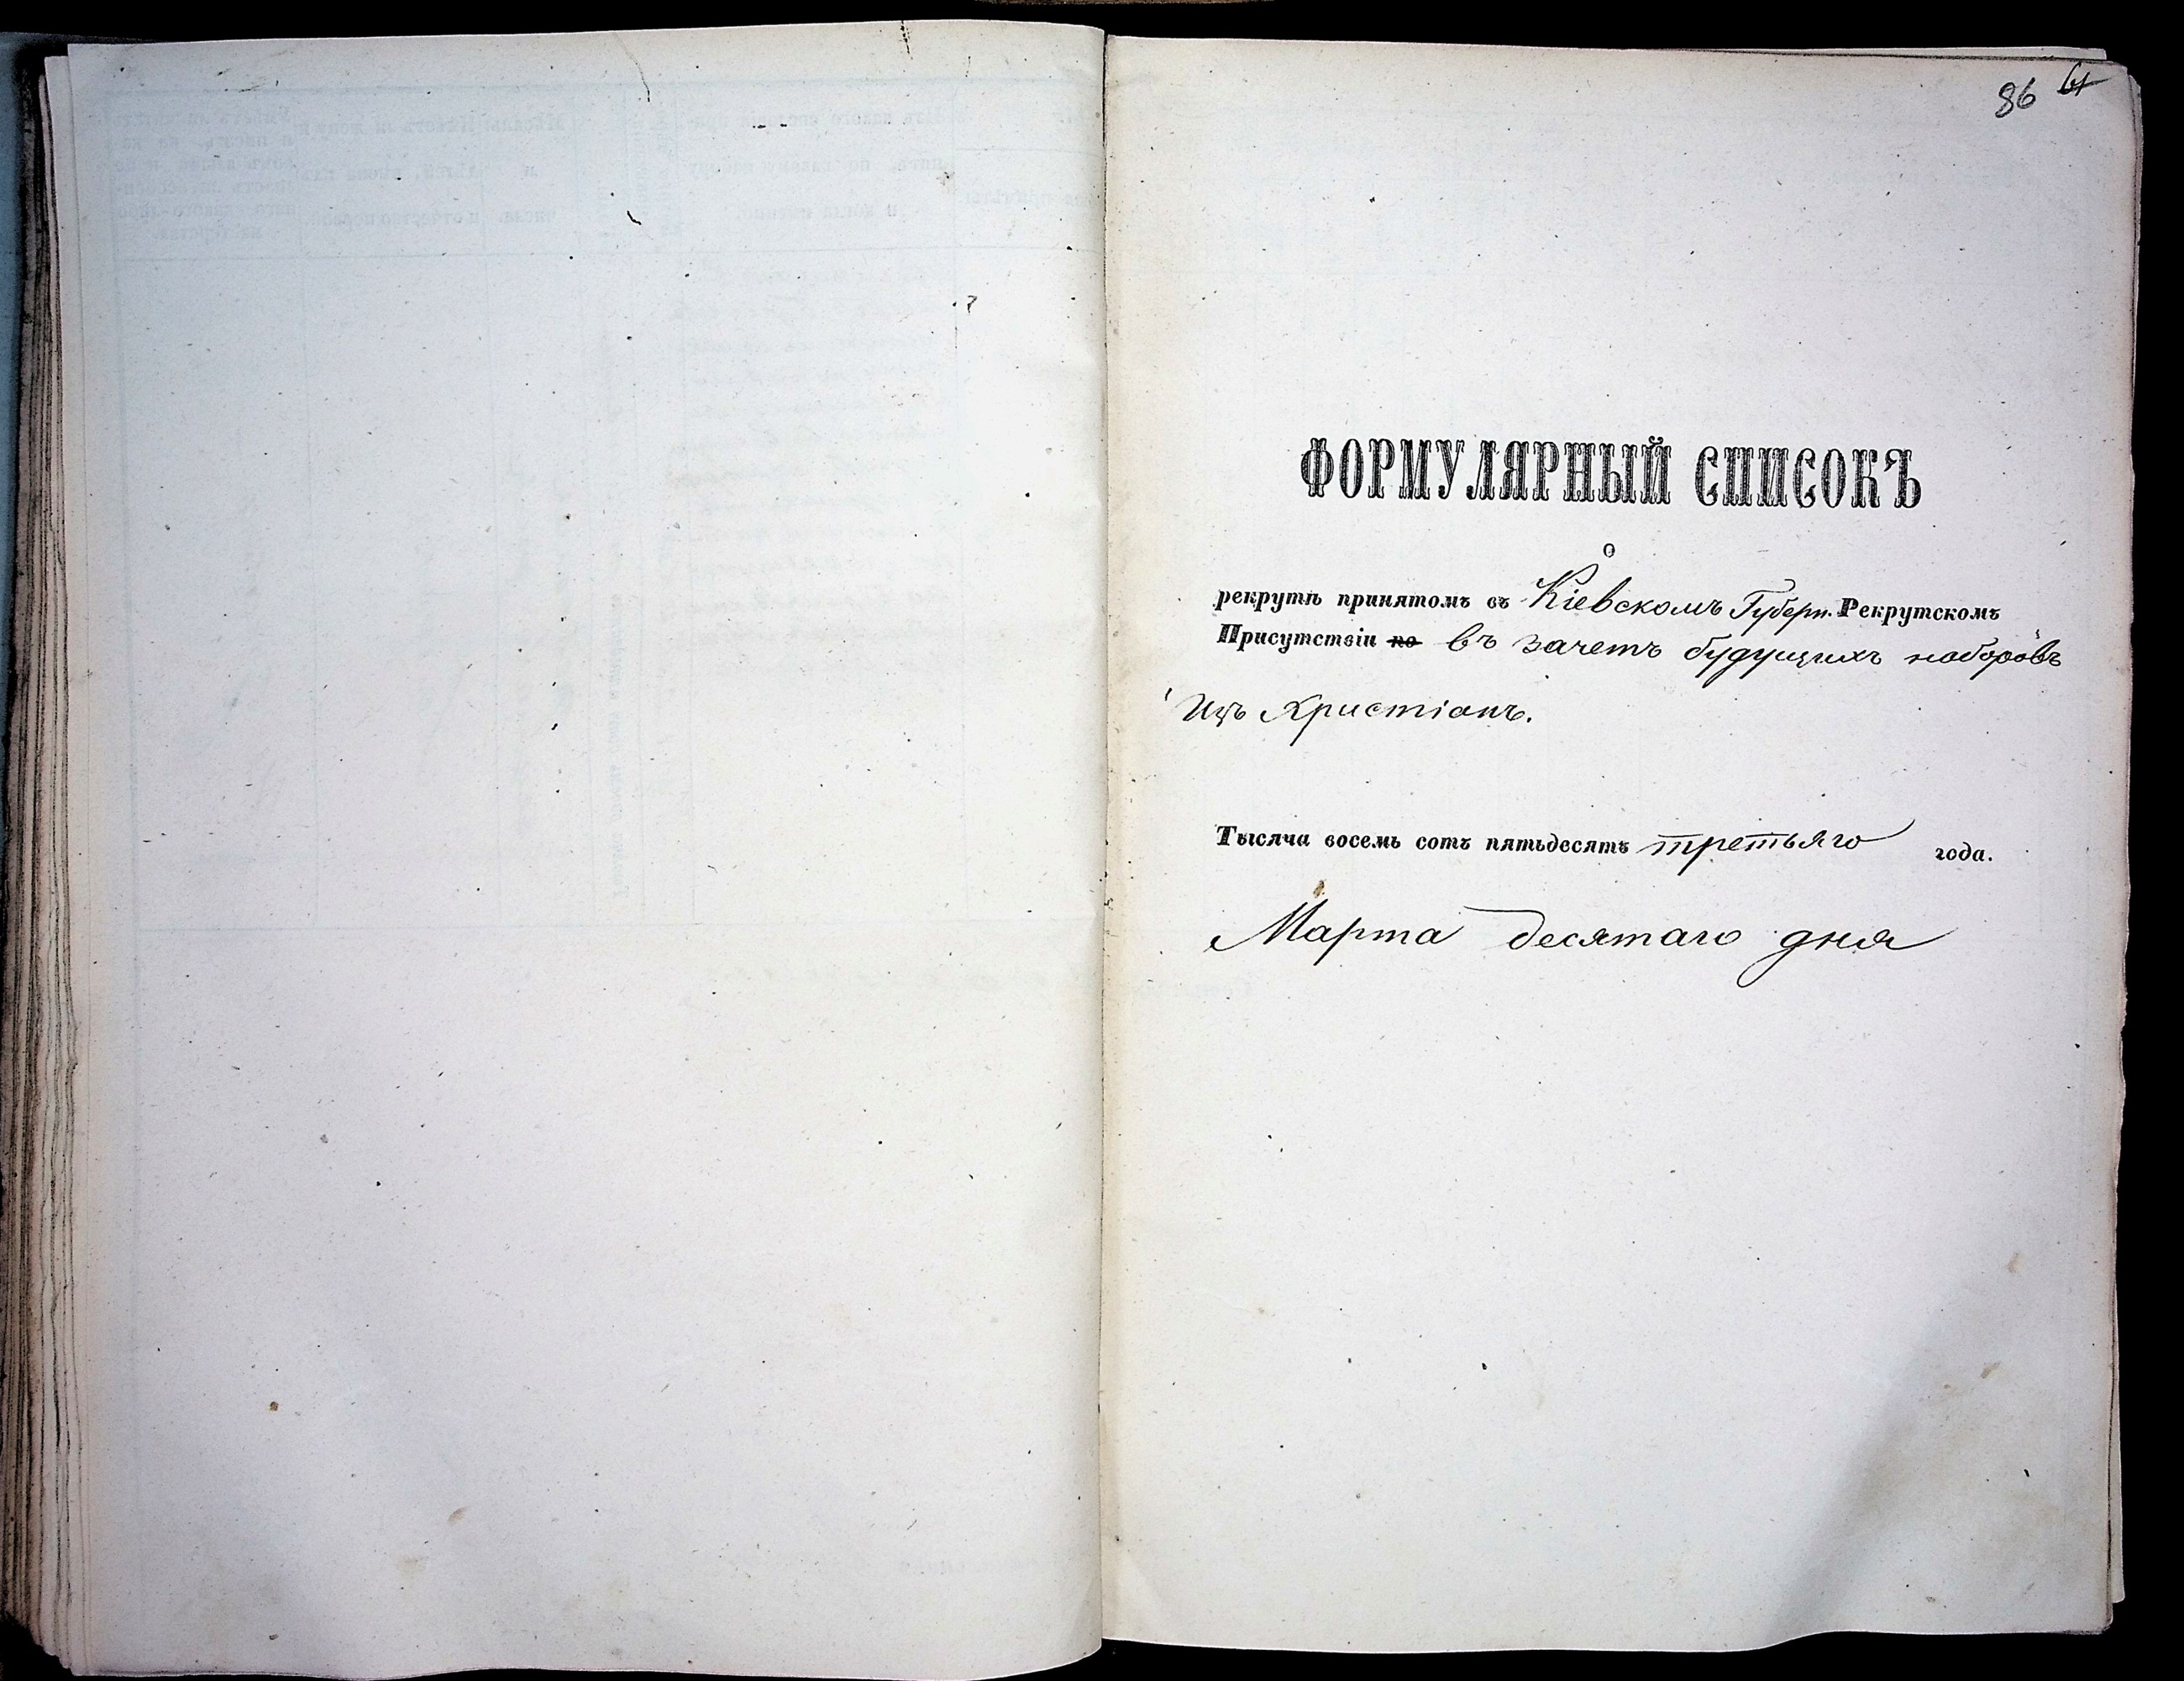 86 61
ФОРМУЛЯРНЫЙ СПИСОКЪ
о
рекрутѣ принятомъ въ Кіевскомъ Губерн. Рекрутскомъ
Присутствіи по въ зачетъ будущихъ наборовъ
Изъ Христіанъ.
Тысяча восемь сотъ пятьдесятъ третьяго года.
Марта десятаго дня